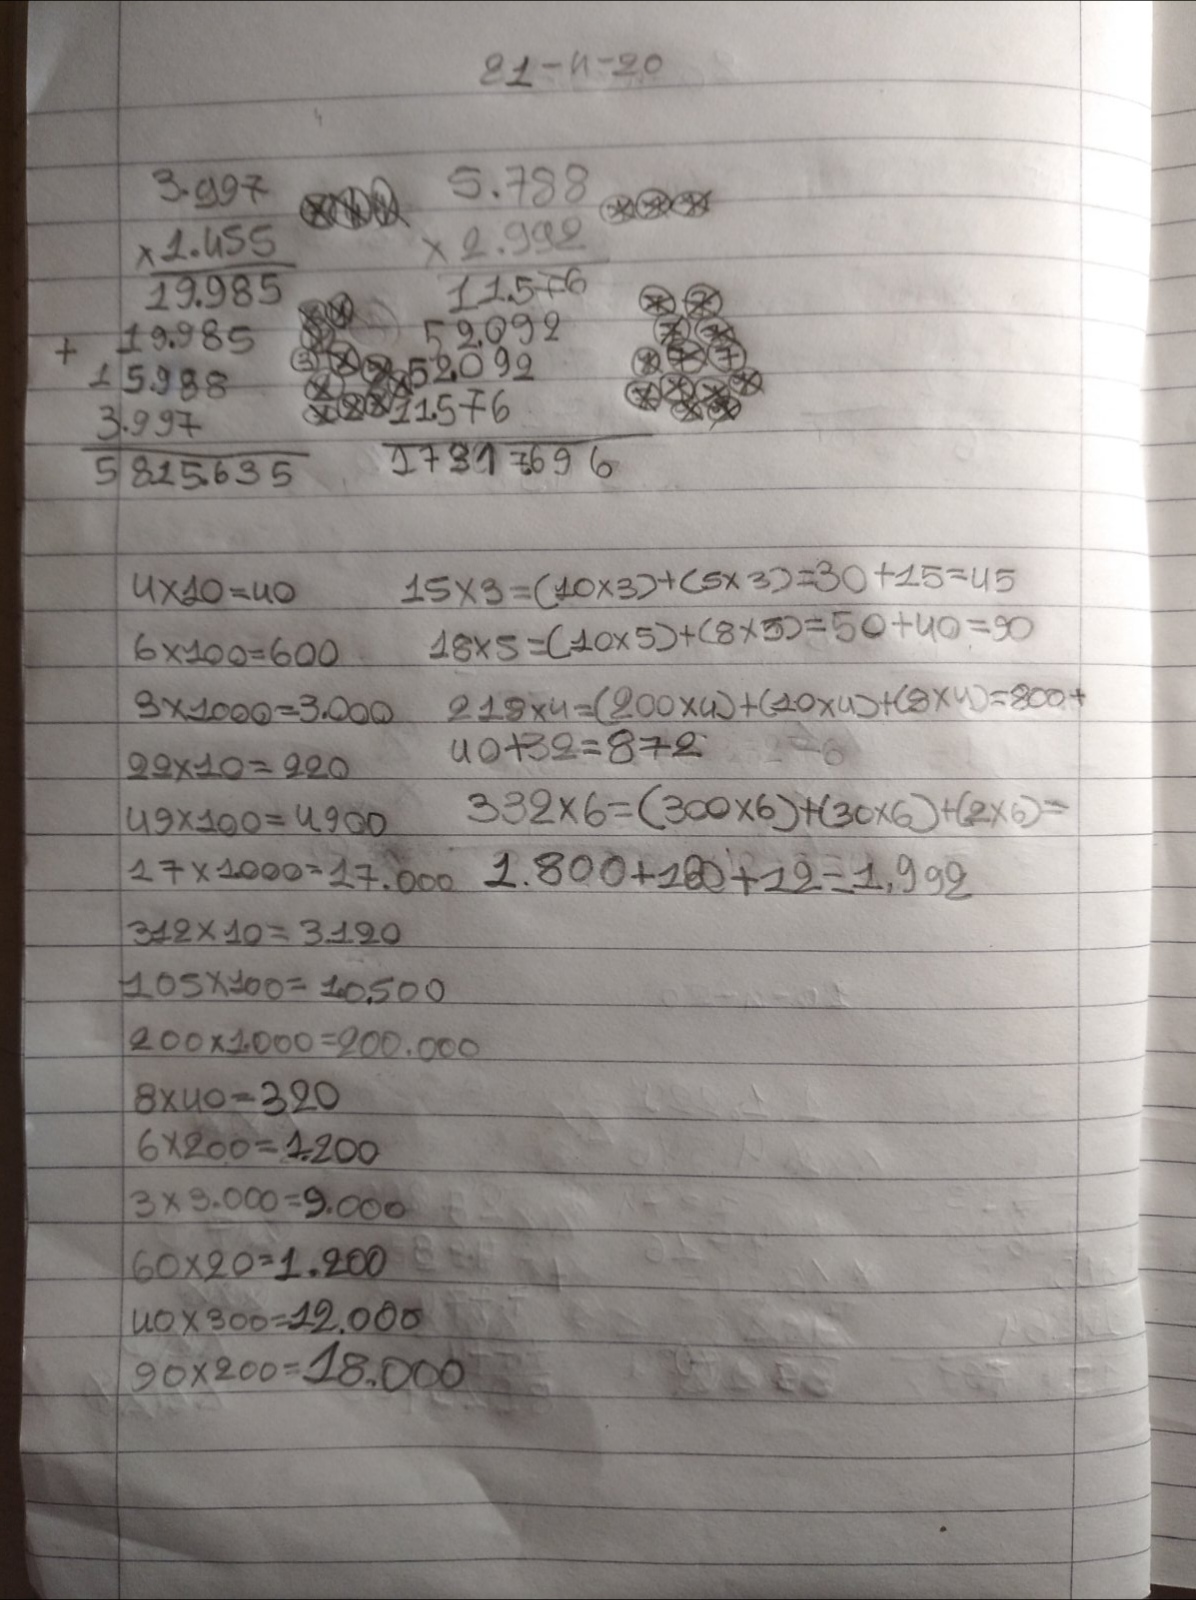 21-4-20
3.997
x1.455
19.985
+ 19.985
15.988
3.997
5815.635
5.788
x 2.992
11.576
52.092
52.092
11.576
17317.696
4x10=40
6x100=600
3x1000=3.000
22x10=220
49x100=4900
17x1000=17.000
312x10=3120
105x100=10.500
200x1000=200.000
8x40=320
6x200=1.200
3x3.000=9.000
60x20=1.200
40x300=12.000
90x200=18.000
15x3=(10x3)+(5x3)=30+15=45
18x5=(10x5)+(8x5)=50+40=90
218x4=(200x4)+(10x4)+(8x4)=800+
40+32=872
332x6=(300x6)+(30x6)+(2x6)=
1.800+180+12=1.992